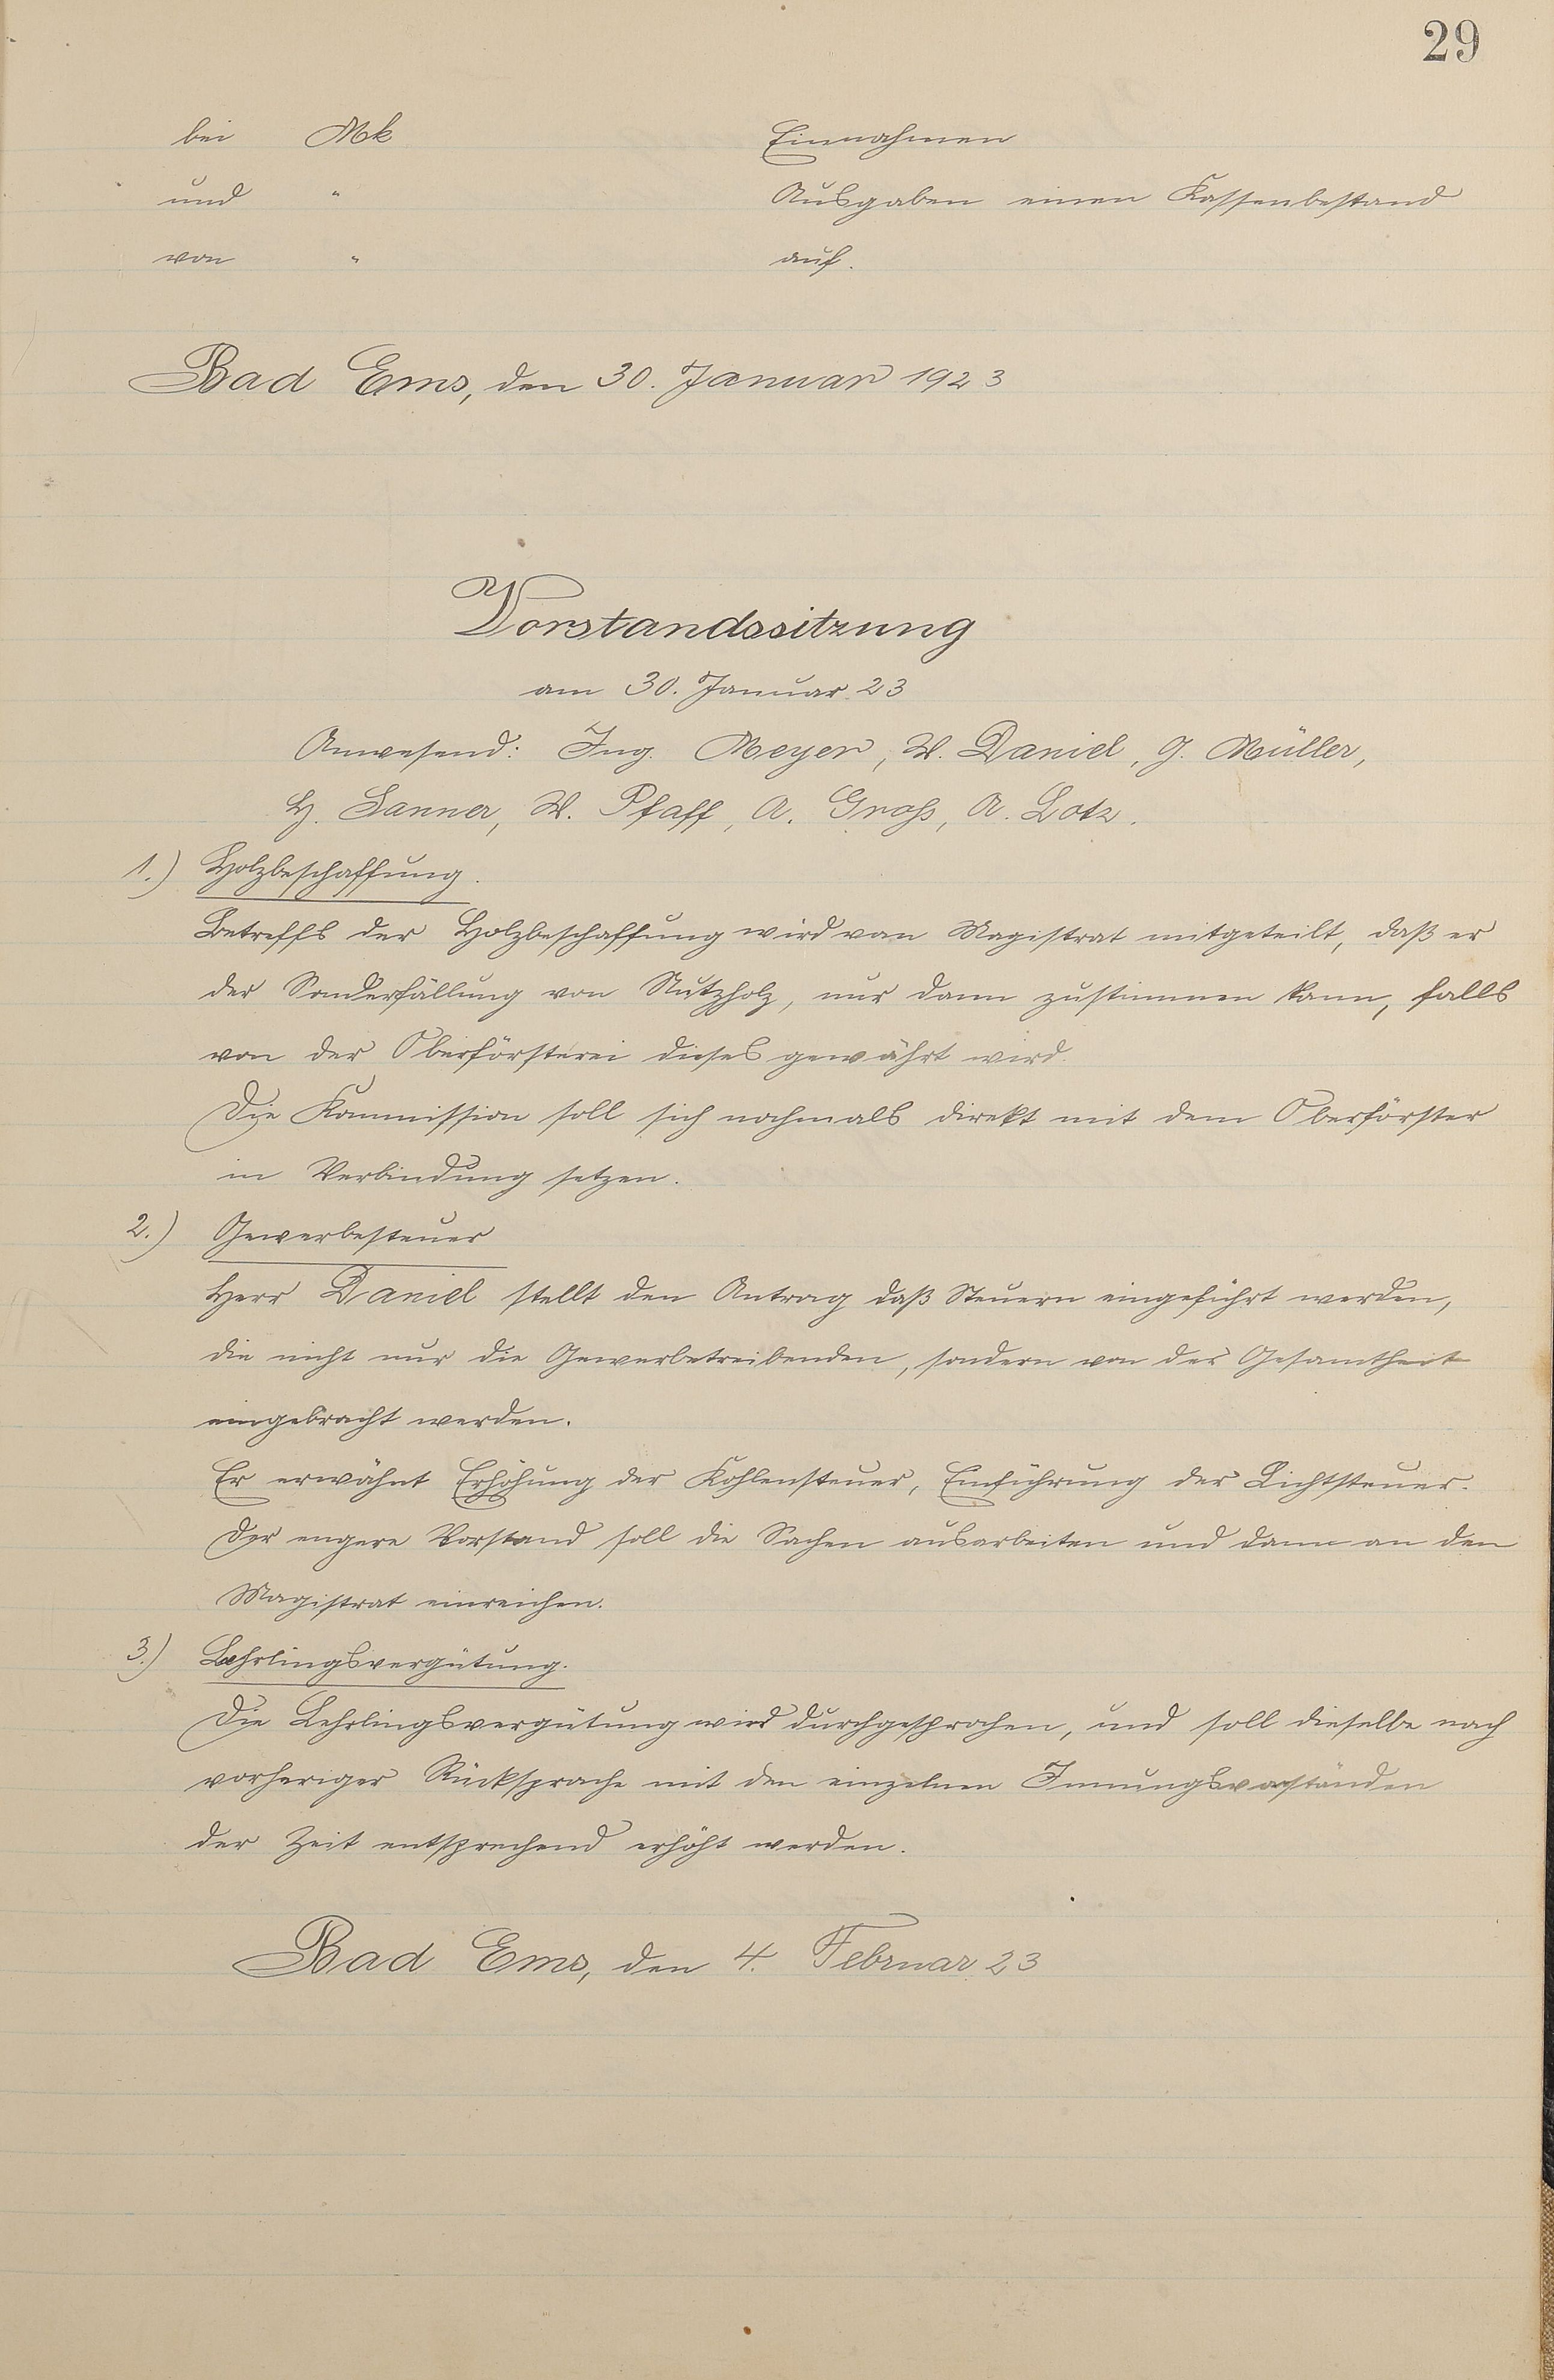 29
bei Mk Einnahmen
und " Ausgaben einen Kassenbestand
von " auf.
Bad Ems, den 30. Januar 1923
Vorstandssitzung
am 30. Januar 23
Anwesend: Ing. Meyer, W. Daniel, J. Müller,
H. Sanner, W. Pfaff, A. Groß, A. Lotz.
1.) Holzbeschaffung.
Betreffs der Holzbeschaffung wird vom Magistrat mitgeteilt, daß er
der Sonderfällung von Nutzholz, nur dann zustimmen kann, falls
von der Oberförsterei dieses gewährt wird.
Die Kommission soll sich nochmals direkt mit dem Oberförster
in Verbindung setzen.
2.) Gewerbesteuer
Herr Daniel stellt den Antrag daß Steuern eingeführt werden,
die nicht nur die Gewerbetreibenden, sondern von der Gesamtheit
eingebracht werden.
Er erwähnt Erhöhung der Kohlensteuer, Einführung der Lichtsteuer.
Der engere Vorstand soll die Sachen ausarbeiten und dann an den
Magistrat einreichen.
3.) Lehrlingsvergütung.
Die Lehrlingsvergütung wird durchgesprochen, und soll dieselbe nach
vorheriger Rücksprache mit den einzelnen Innungsvorständen
der Zeit entsprechend erhöht werden.
Bad Ems, den 4. Februar 23